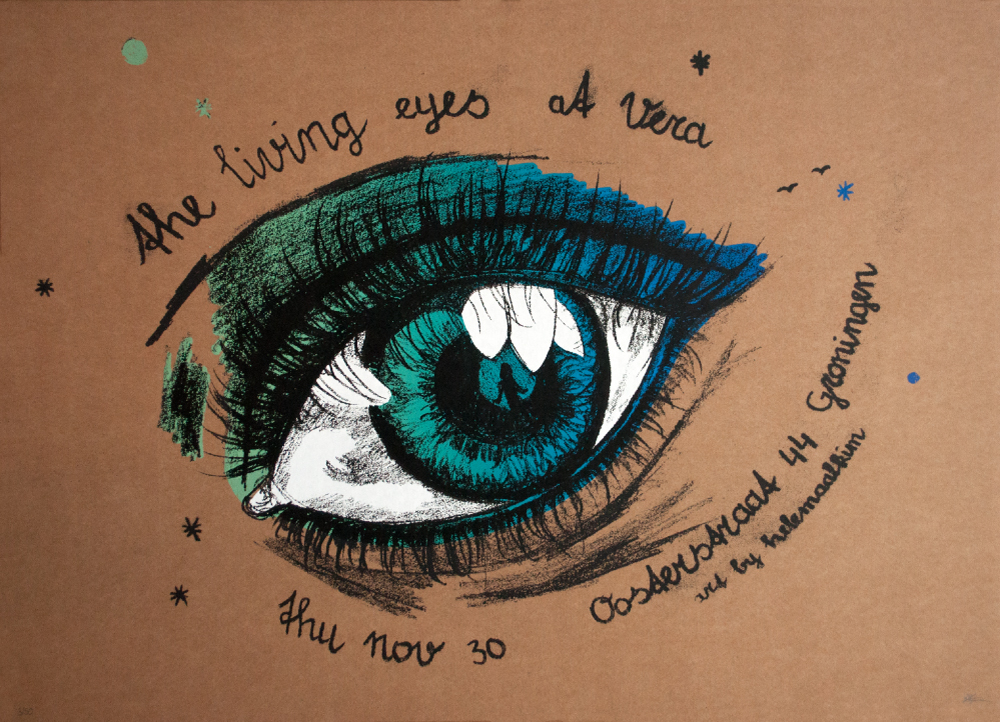 the living eyes at Vera
Oosterstraat 44 Groningen
art by helemaalkim
thu nov 30